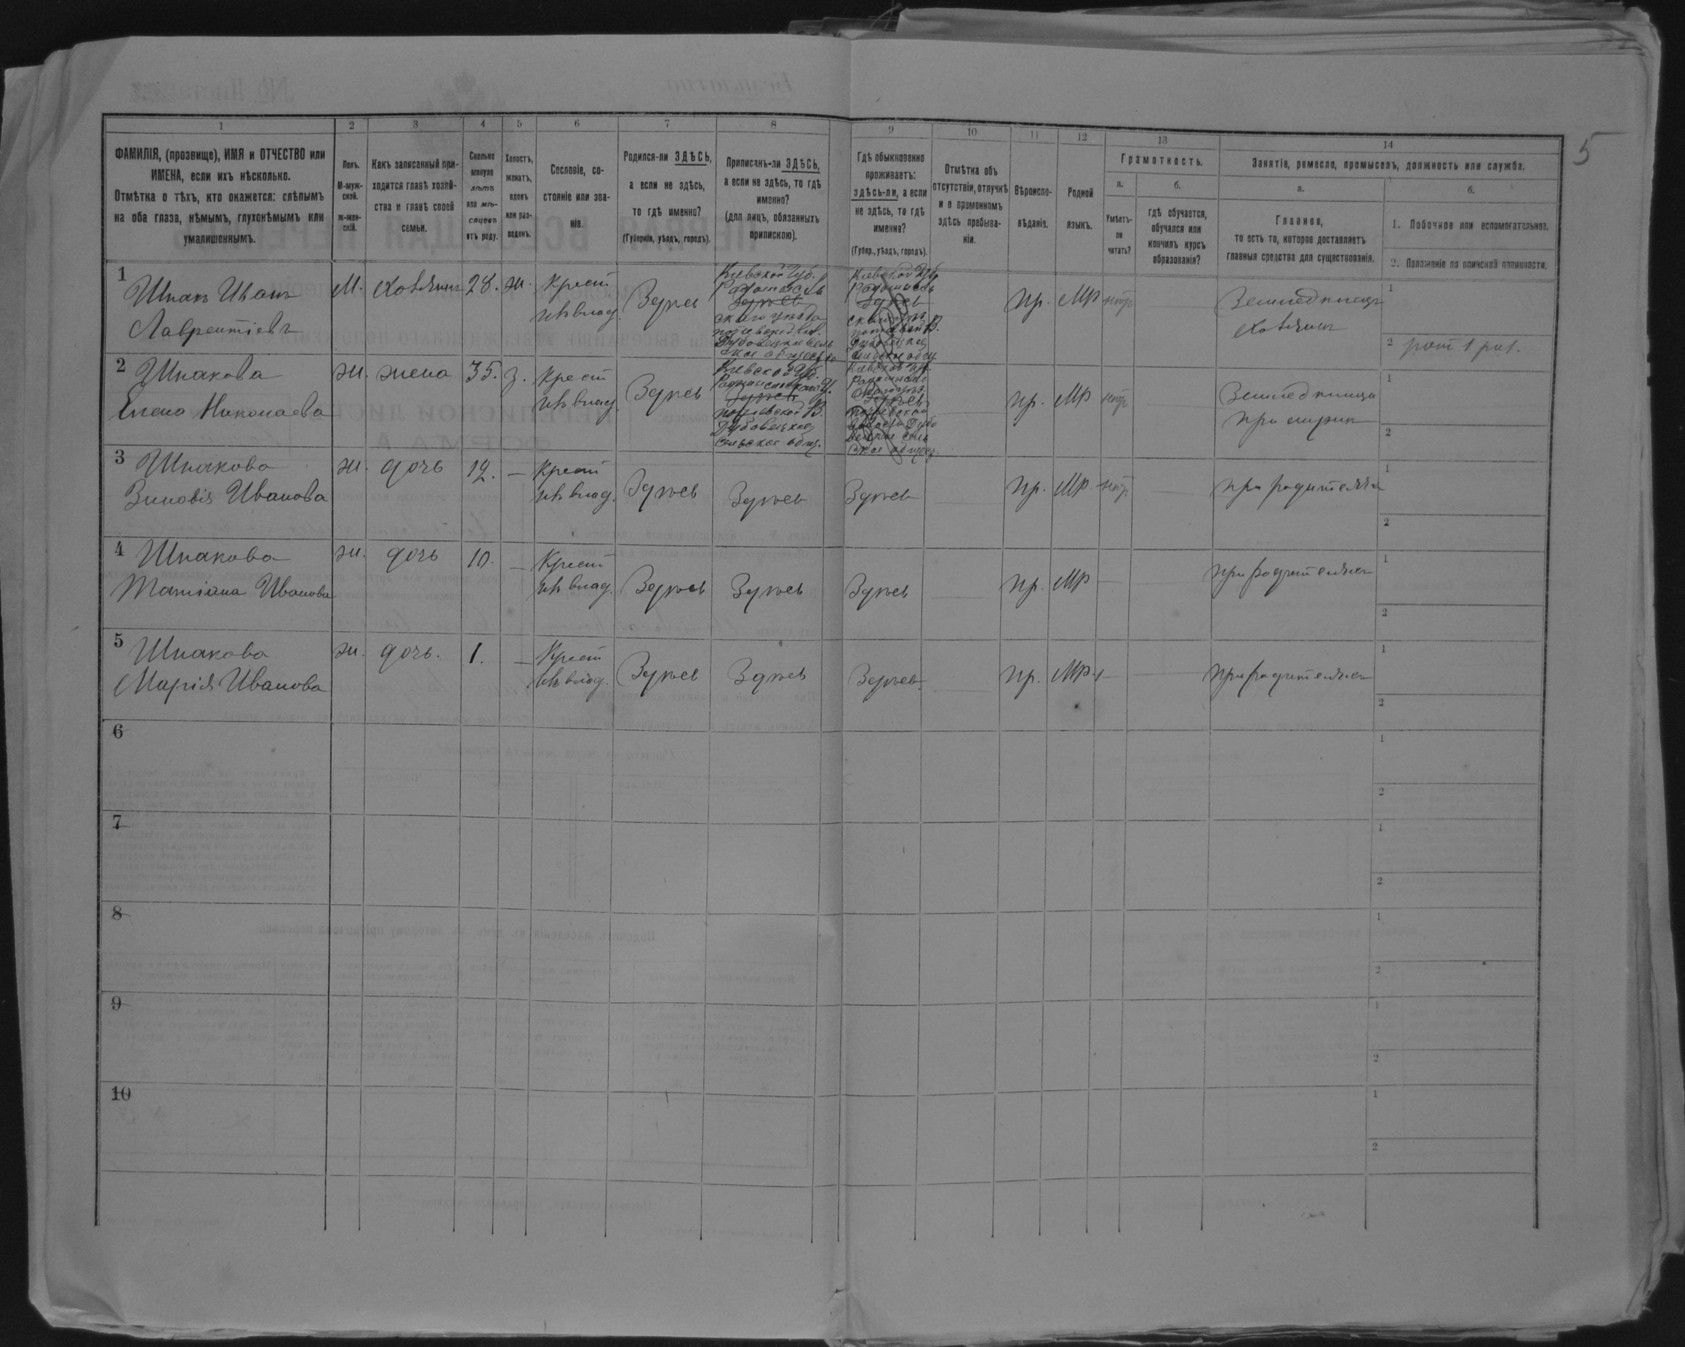 5
1
2
3
4
5
6
7
8
9
10
11
12
13
14
ФАМИЛІЯ, (прозвище), ИМЯ и ОТЧЕСТВО или
ИМЕНА, если ихъ нѣсколько.
Отмѣтка о тѣхъ, кто окажется: слѣпымъ
на оба глаза, нѣмымъ, глухонѣмымъ или
умалишеннымъ.
Полъ.
М-муж-
ской.
Ж-жен-
скій.
Какъ записанный при-
ходится главѣ хозяй-
ства и главѣ своей
семьи.
Сколько
минуло
лѣтъ
или мѣ-
сяцевъ
отъ роду.
Холостъ,
женатъ,
вдовъ
или раз-
веденъ.
Сословіе, со-
стояніе или зва-
ніе.
Родился-ли ЗДѢСЬ,
а если не здѣсь,
то гдѣ именно?
(Губернія, уѣздъ, городъ).
Приписанъ-ли ЗДѢСЬ,
а если не здѣсь, то гдѣ
именно?
(для лицъ, обязанныхъ
припискою).
Гдѣ обыкновенно
проживаетъ:
здѣсь-ли, а если
не здѣсь, то гдѣ
именно?
(Губер., уѣздъ, городъ).
Отмѣтка объ
отсутствіи, отлучкѣ
и о временномъ
здѣсь пребыва-
ніи.
Вѣроиспо-
вѣданіе.
Родной
языкъ.
Грамотность.
а.
Умѣетъ-
ли
читать?
б.
гдѣ обучается,
обучался или
кончилъ курсъ
образованія?
Занятіе, ремесло, промыселъ, должность или служба.
а.
Главное,
то есть то, которое доставляетъ
главныя средства для существованія.
б.
1. Побочное или вспомогательное.
2. Положеніе по воинской повинности.
1 Шпакъ Иванъ
Лаврентіевъ
М. хозяинъ 28. ж. Крест
изъ влад.
Здѣсь
Кіевской губ.
Радомысль
скаго уѣзда
Кіевской губ
пр. Мр нѣтъ
Земледелецъ
хозяинъ
1
2 рат 1 раз.
2 Шпакова
Елена Николаева
ж. жена 35. з. Крест
изъ влад.
Здѣсь
Кіевской губ.
пр. Мр нѣтъ
Земледелица
при мужѣ
1
2
3 Шпакова
Зиновія Иванова
ж. дочь 12. — Крест
изъ влад.
Здѣсь Здѣсь Здѣсь
пр. Мр. нѣтъ
при родителяхъ
1
2
4 Шпакова
Татіана Иванова
ж. дочь 10. — Крест
изъ влад.
Здѣсь Здѣсь Здѣсь
пр. Мр —
при родителяхъ
1
2
5 Шпакова
Марія Иванова
ж. дочь. 1. — Крест
изъ влад.
Здѣсь Здѣсь Здѣсь
пр. Мр. —
при родителяхъ
1
2
6
1
2
7
1
2
8
1
2
9
1
2
10
1
2